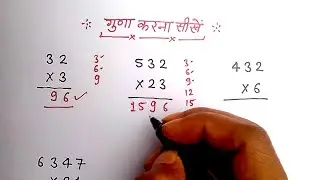 गुणा करना सीखें
32
×3
96
3-
6-
9
532
×23
1596
3-
6-
9-
12
15
432
×6
6347